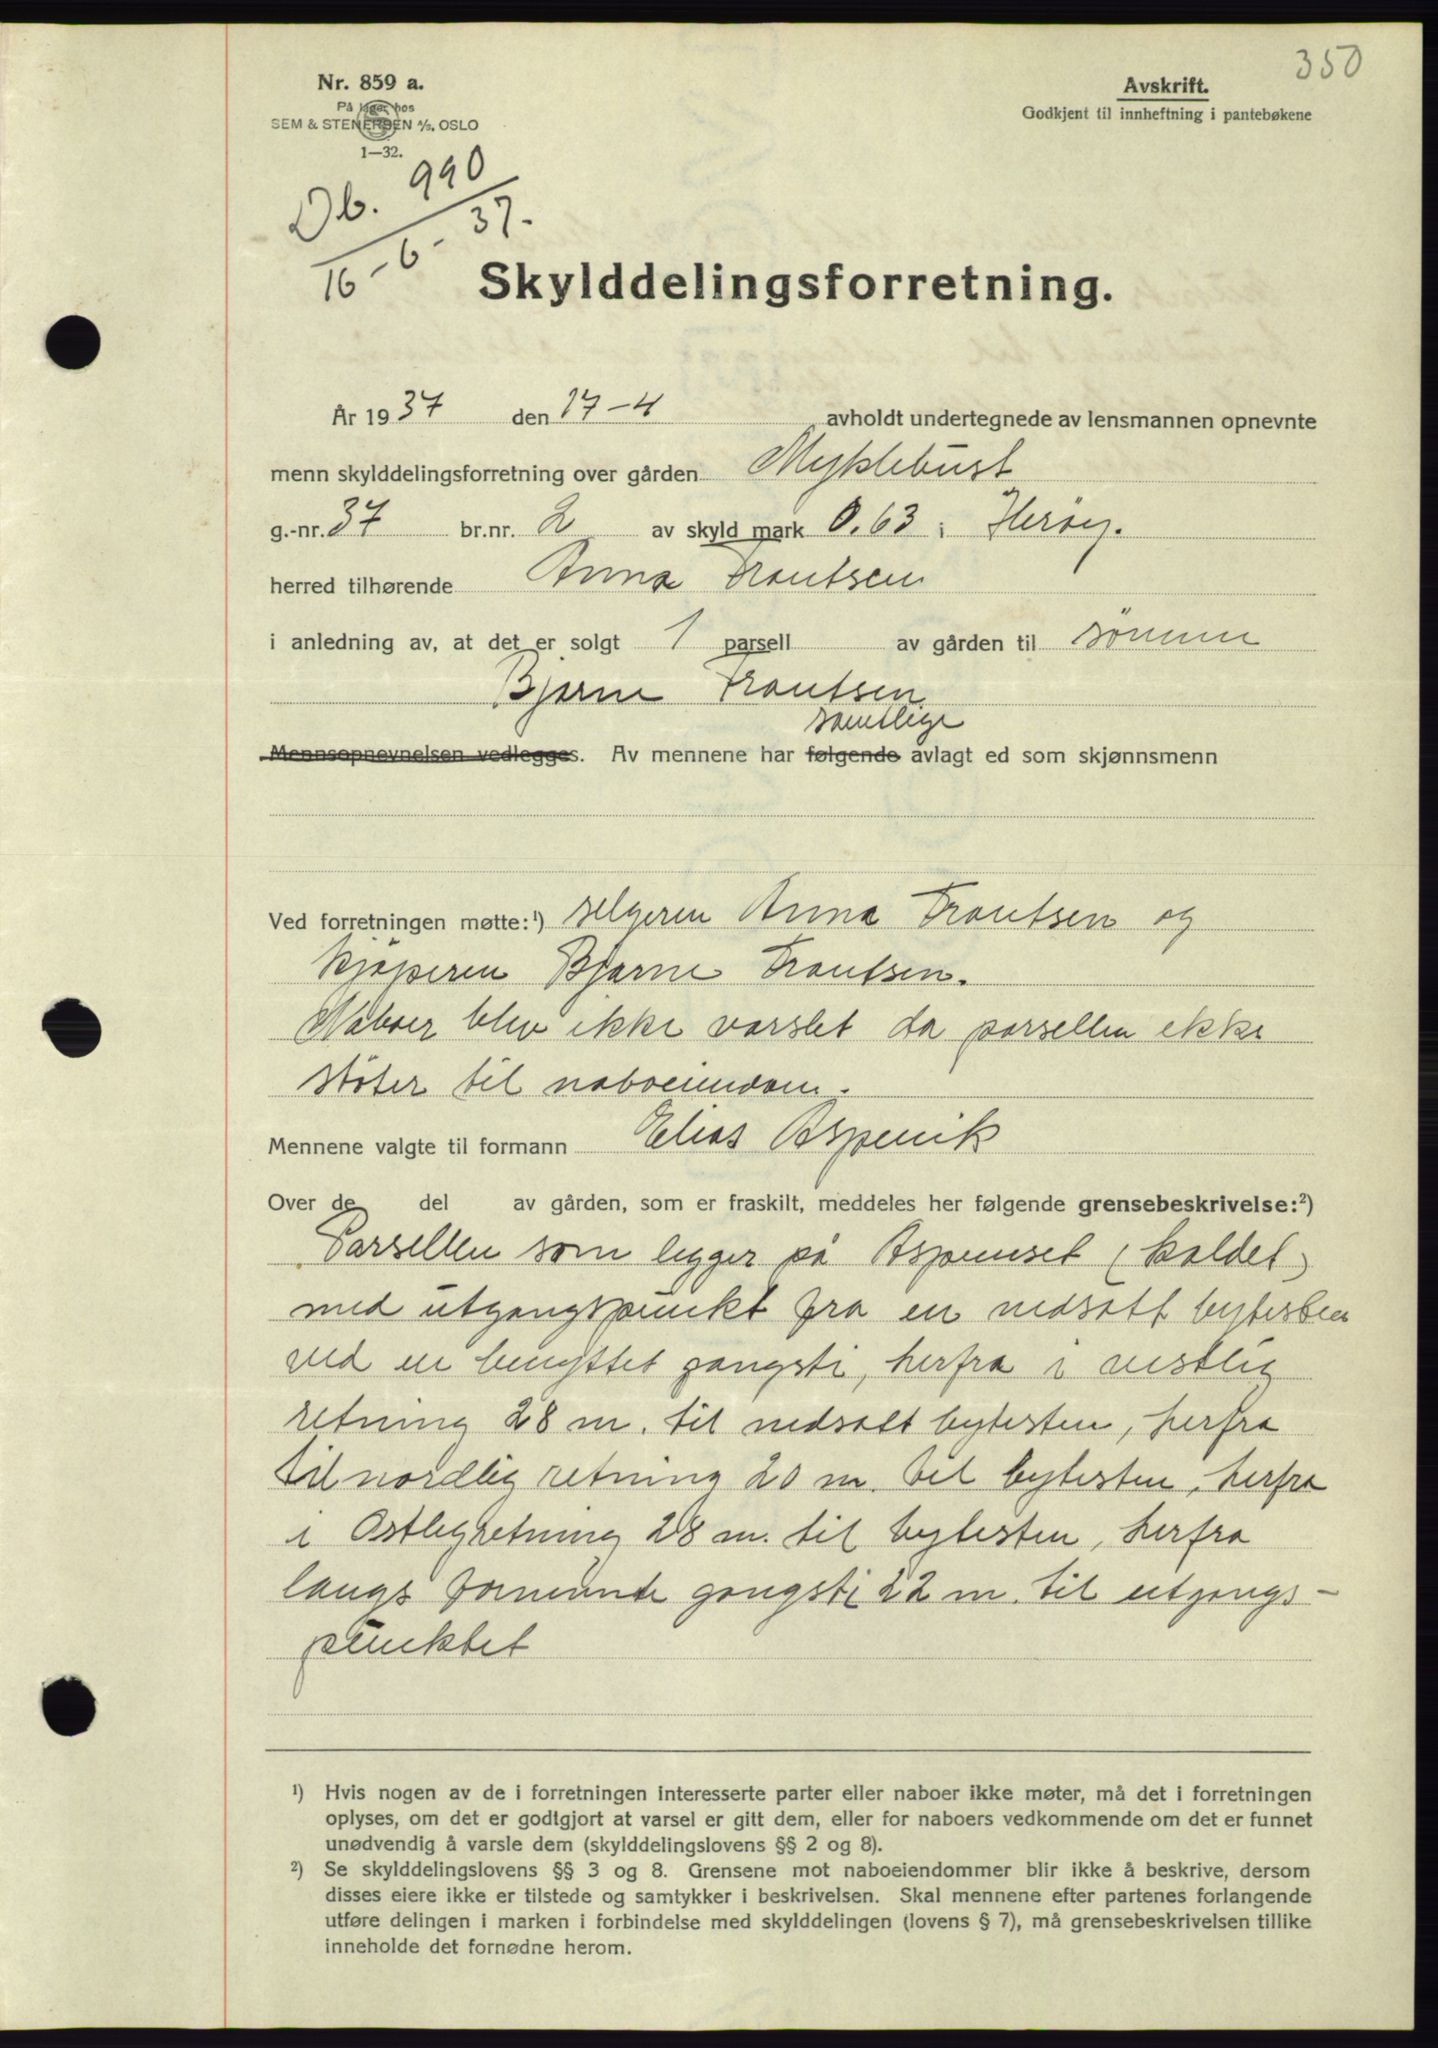 350
Nr. 859 a.
På lager hos
SEM & STENERSEN A/S, OSLO
1—32.
Avskrift.
Godkjent til innheftning i pantebøkene
Db. 990
16-6-37.
Skylddelingsforretning.
År 1937 den 17-4 avholdt undertegnede av lensmannen opnevnte
menn skylddelingsforretning over gården Myklebust
g.-nr. 37 br.nr. 2 av skyld mark 0.63 i Herøy.
herred tilhørende Anna Frantsen
i anledning av, at det er solgt 1 parsell av gården til sønnen
Bjarne Frantsen
samtlige
Mennsopnevnelsen vedlegges. Av mennene har følgende avlagt ed som skjønnsmenn
Ved forretningen møtte:¹) selgeren Anna Frantsen og
kjøperen Bjarne Frantsen.
Naboer blev ikke varslet da parsellen ikke
støter til naboeiendom.
Mennene valgte til formann Elias Aspevik
Over de del av gården, som er fraskilt, meddeles her følgende grensebeskrivelse:²)
Parsellen som ligger på (kaldet)
med utgangspunkt fra en nedsatt bytesten
ved en benyttet gangsti, herfra i vestlig
retning 28 m. til nedsatt bytesten, herfra
til nordlig retning 20 m. til bytesten, herfra
i Østlig retning 28 m. til bytesten, herfra
langs fornevnte gangsti 22 m. til utgangs-
punktet
¹) Hvis nogen av de i forretningen interesserte parter eller naboer ikke møter, må det i forretningen
oplyses, om det er godtgjort at varsel er gitt dem, eller for naboers vedkommende om det er funnet
unødvendig å varsle dem (skylddelingslovens §§ 2 og 8).
²) Se skylddelingslovens §§ 3 og 8. Grensene mot naboeiendommer blir ikke å beskrive, dersom
disses eiere ikke er tilstede og samtykker i beskrivelsen. Skal mennene efter partenes forlangende
utføre delingen i marken i forbindelse med skylddelingen (lovens § 7), må grensebeskrivelsen tillike
inneholde det fornødne herom.